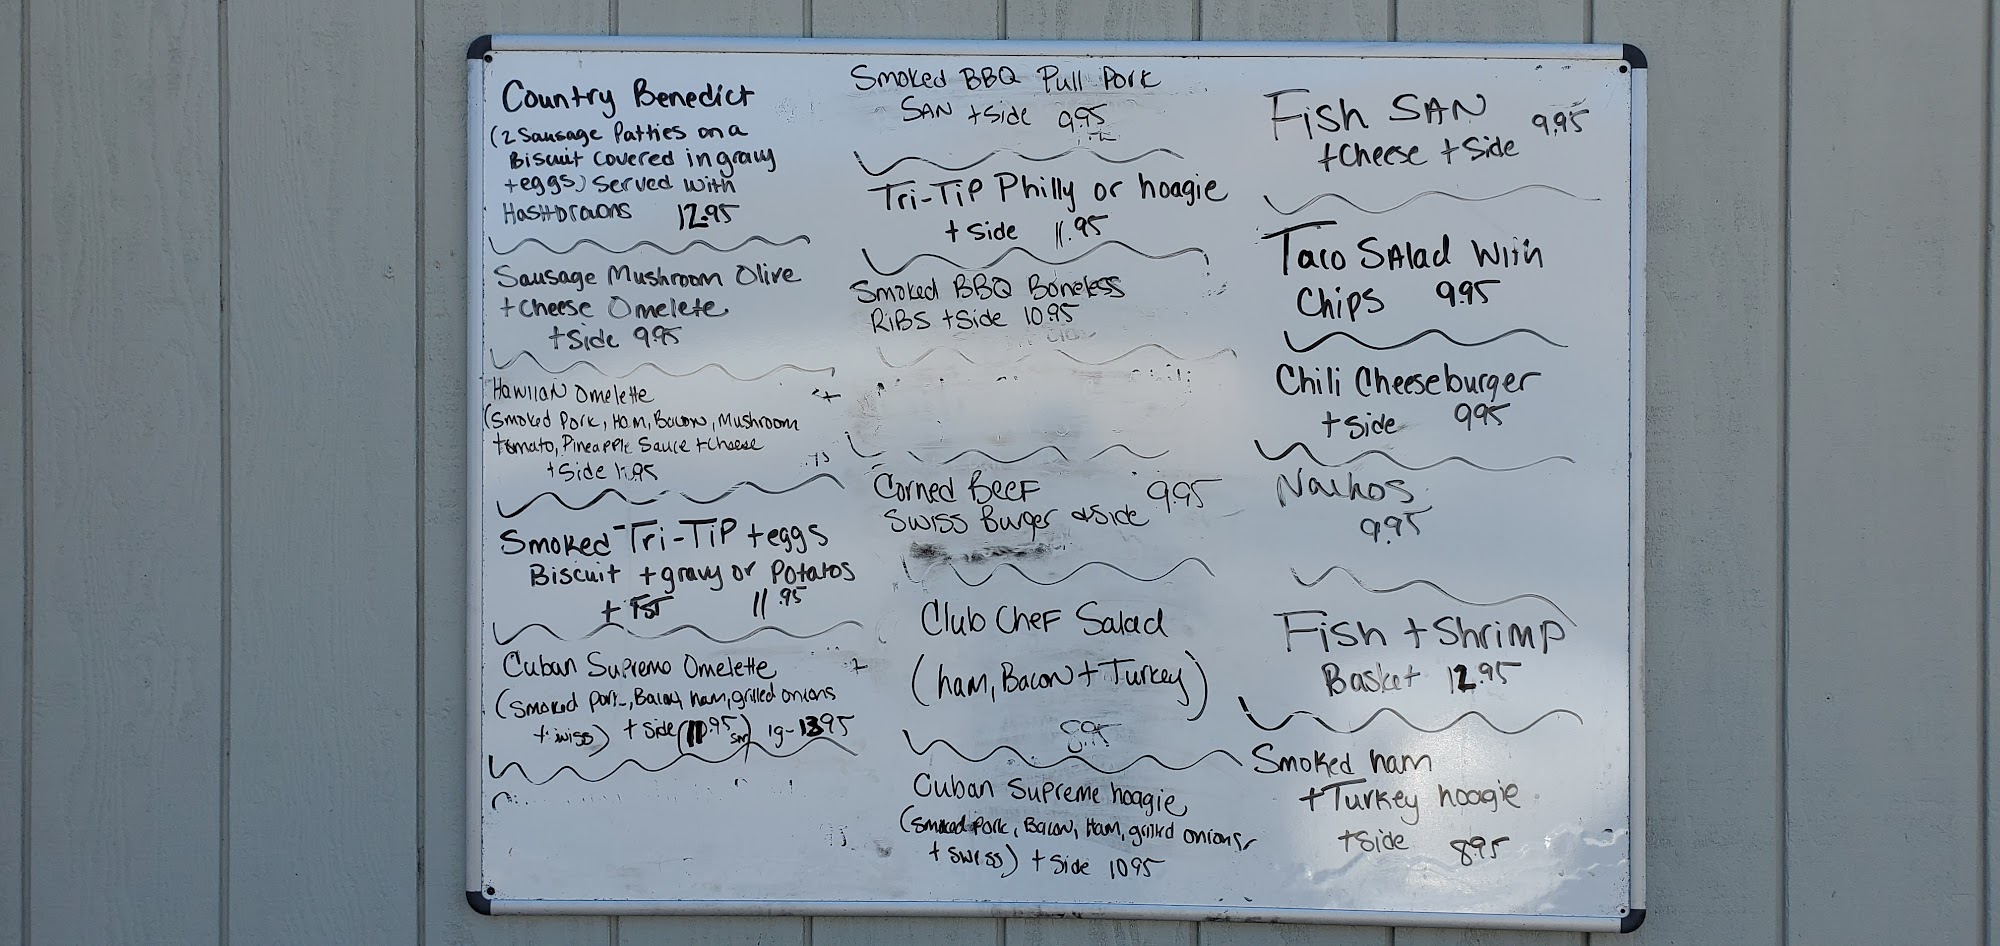 Country Benedict
(2 Sausage Patties on a
Biscuit covered in gravy
+eggs) Served with
Hashbrowns 12.95
Sausage Mushroom Olive
+Cheese Omelete
+Side 9.95
Hawiian Omelette
(Smoked Pork, Ham, Bacon, Mushroom
tomato, Pineapple Sauce +cheese
+Side 11.95
Smoked Tri-Tip +eggs
Biscuit +gravy or Potatos
+ TST 11.95
Cuban Supremo Omelette
(Smoked Pork, Bacon, ham, grilled onions
+ swiss) + Side 10.95 sm) lg-13.95
Smoked BBQ Pull Pork
SAN +Side 9.95
Tri-Tip Philly or hoagie
+ Side 11.95
Smoked BBQ Boneless
RiBS +Side 10.95
Corned Beef 9.95
Swiss Burger +Side
Club Chef Salad
(ham, Bacon + Turkey)
8.95
Cuban Supreme hoagie
(Smoked Pork, Bacon, Ham, grilled onions
+ Swiss) + Side 10.95
Fish SAN 9.95
+Cheese +Side
Taco Salad With
Chips 9.95
Chili Cheeseburger
+Side 9.95
Nachos
9.95
Fish + Shrimp
Basket 12.95
Smoked ham
+Turkey hoagie
+Side 8.95